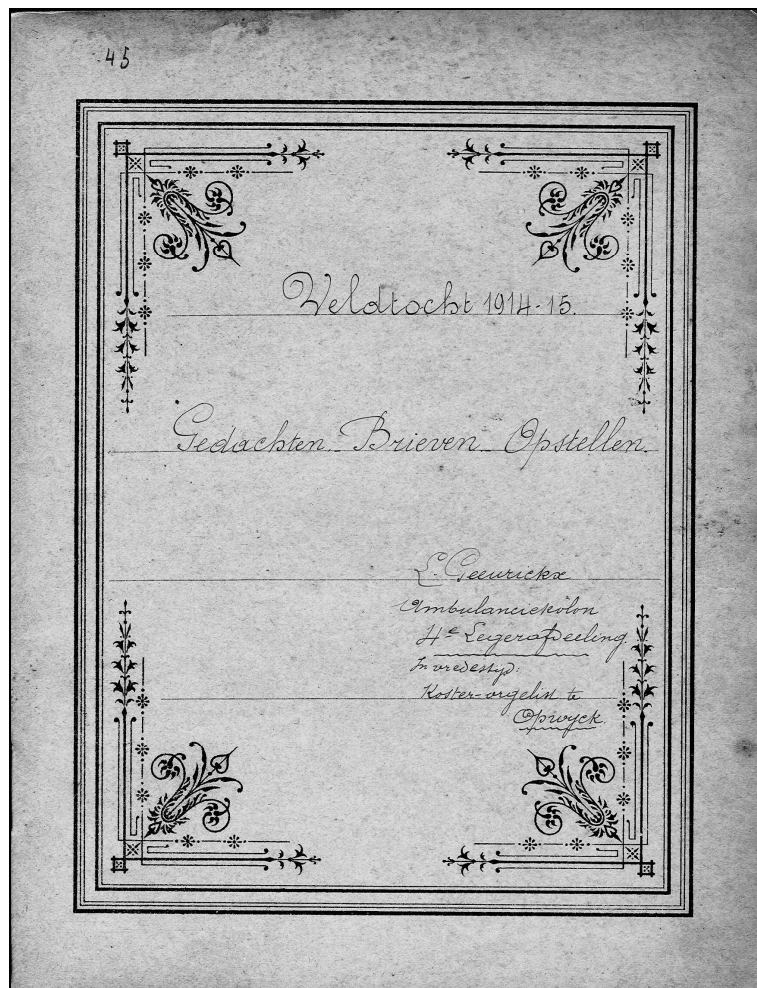 45
Veldtocht 1914-15.
Gedachten - Brieven - Opstellen.
L. Geeurickx
Ambulanciekolon
4e Legerafdeeling.
In vredestijd:
Koster-orgelist te
Opwyck